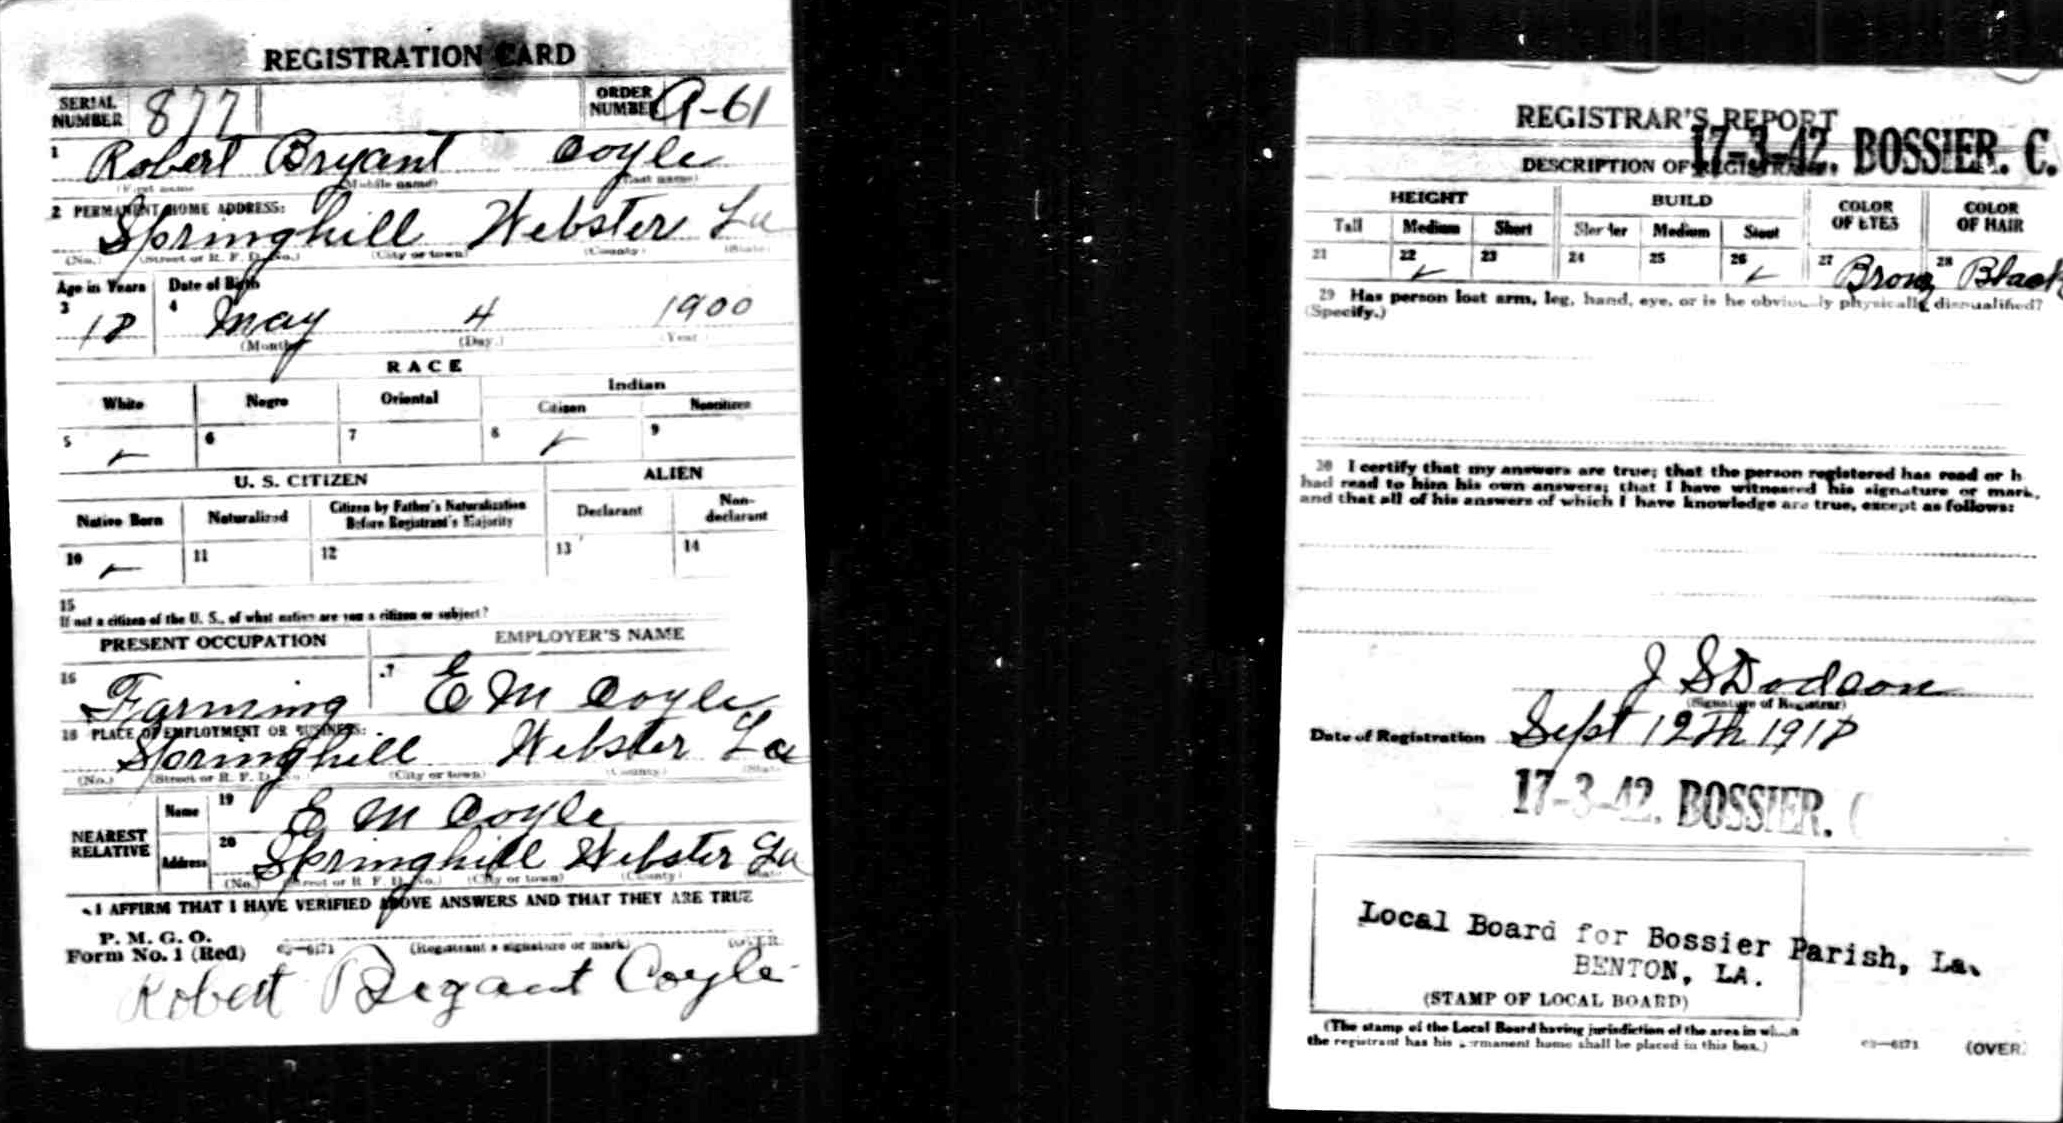 REGISTRATION CARD
SERIAL NUMBER 877 ORDER NUMBER A-61
1 Robert Bryant Coyle
(First name) (Middle name) (Last name)
2 PERMANENT HOME ADDRESS:
Springhill Webster La
(No.) (Street or R. F. D. No.) (City or town) (County) (State)
Age in Years Date of Birth
3 18 4 May 4 1900
(Month) (Day.) (Year)
RACE
White Negro Oriental Indian
Citizen Noncitizen
5 ✓ 6 7 8 ✓ 9
U. S. CITIZEN ALIEN
Native Born Naturalized Citizen by Father's Naturalization Before Registrant's Majority Declarant Non-declarant
10 ✓ 11 12 13 14
15
If not a citizen of the U. S., of what nation are you a citizen or subject?
PRESENT OCCUPATION EMPLOYER'S NAME
16 Farming 17 E M Coyle
18 PLACE OF EMPLOYMENT OR BUSINESS:
Springhill Webster La
(No.) (Street or R. F. D. No.) (City or town) (County) (State)
NEAREST RELATIVE Name 19 E M Coyle
Address 20 Springhill Webster La
(No.) (Street or R. F. D. No.) (City or town) (County) (State)
I AFFIRM THAT I HAVE VERIFIED ABOVE ANSWERS AND THAT THEY ARE TRUE
P. M. G. O.
Form No. 1 (Red) 03—6171 (Registrant's signature or mark) (OVER)
Robert Bryant Coyle
REGISTRAR'S REPORT
17-3-42. BOSSIER. C.
DESCRIPTION OF REGISTRANT
HEIGHT BUILD COLOR OF EYES COLOR OF HAIR
Tall Medium Short Slender Medium Stout
21 22 ✓ 23 24 25 26 ✓ 27 Brown 28 Black
29 Has person lost arm, leg, hand, eye, or is he obviously physically disqualified?
(Specify.)
30 I certify that my answers are true; that the person registered has read or h
had read to him his own answers; that I have witnessed his signature or mark,
and that all of his answers of which I have knowledge are true, except as follows:
J S Dodson
(Signature of Registrar)
Date of Registration Sept 12th 1918
17-3-42. BOSSIER. C
Local Board for Bossier Parish, La.
BENTON, LA.
(STAMP OF LOCAL BOARD)
(The stamp of the Local Board having jurisdiction of the area in which
the registrant has his permanent home shall be placed in this box.)
03—6171 (OVER)